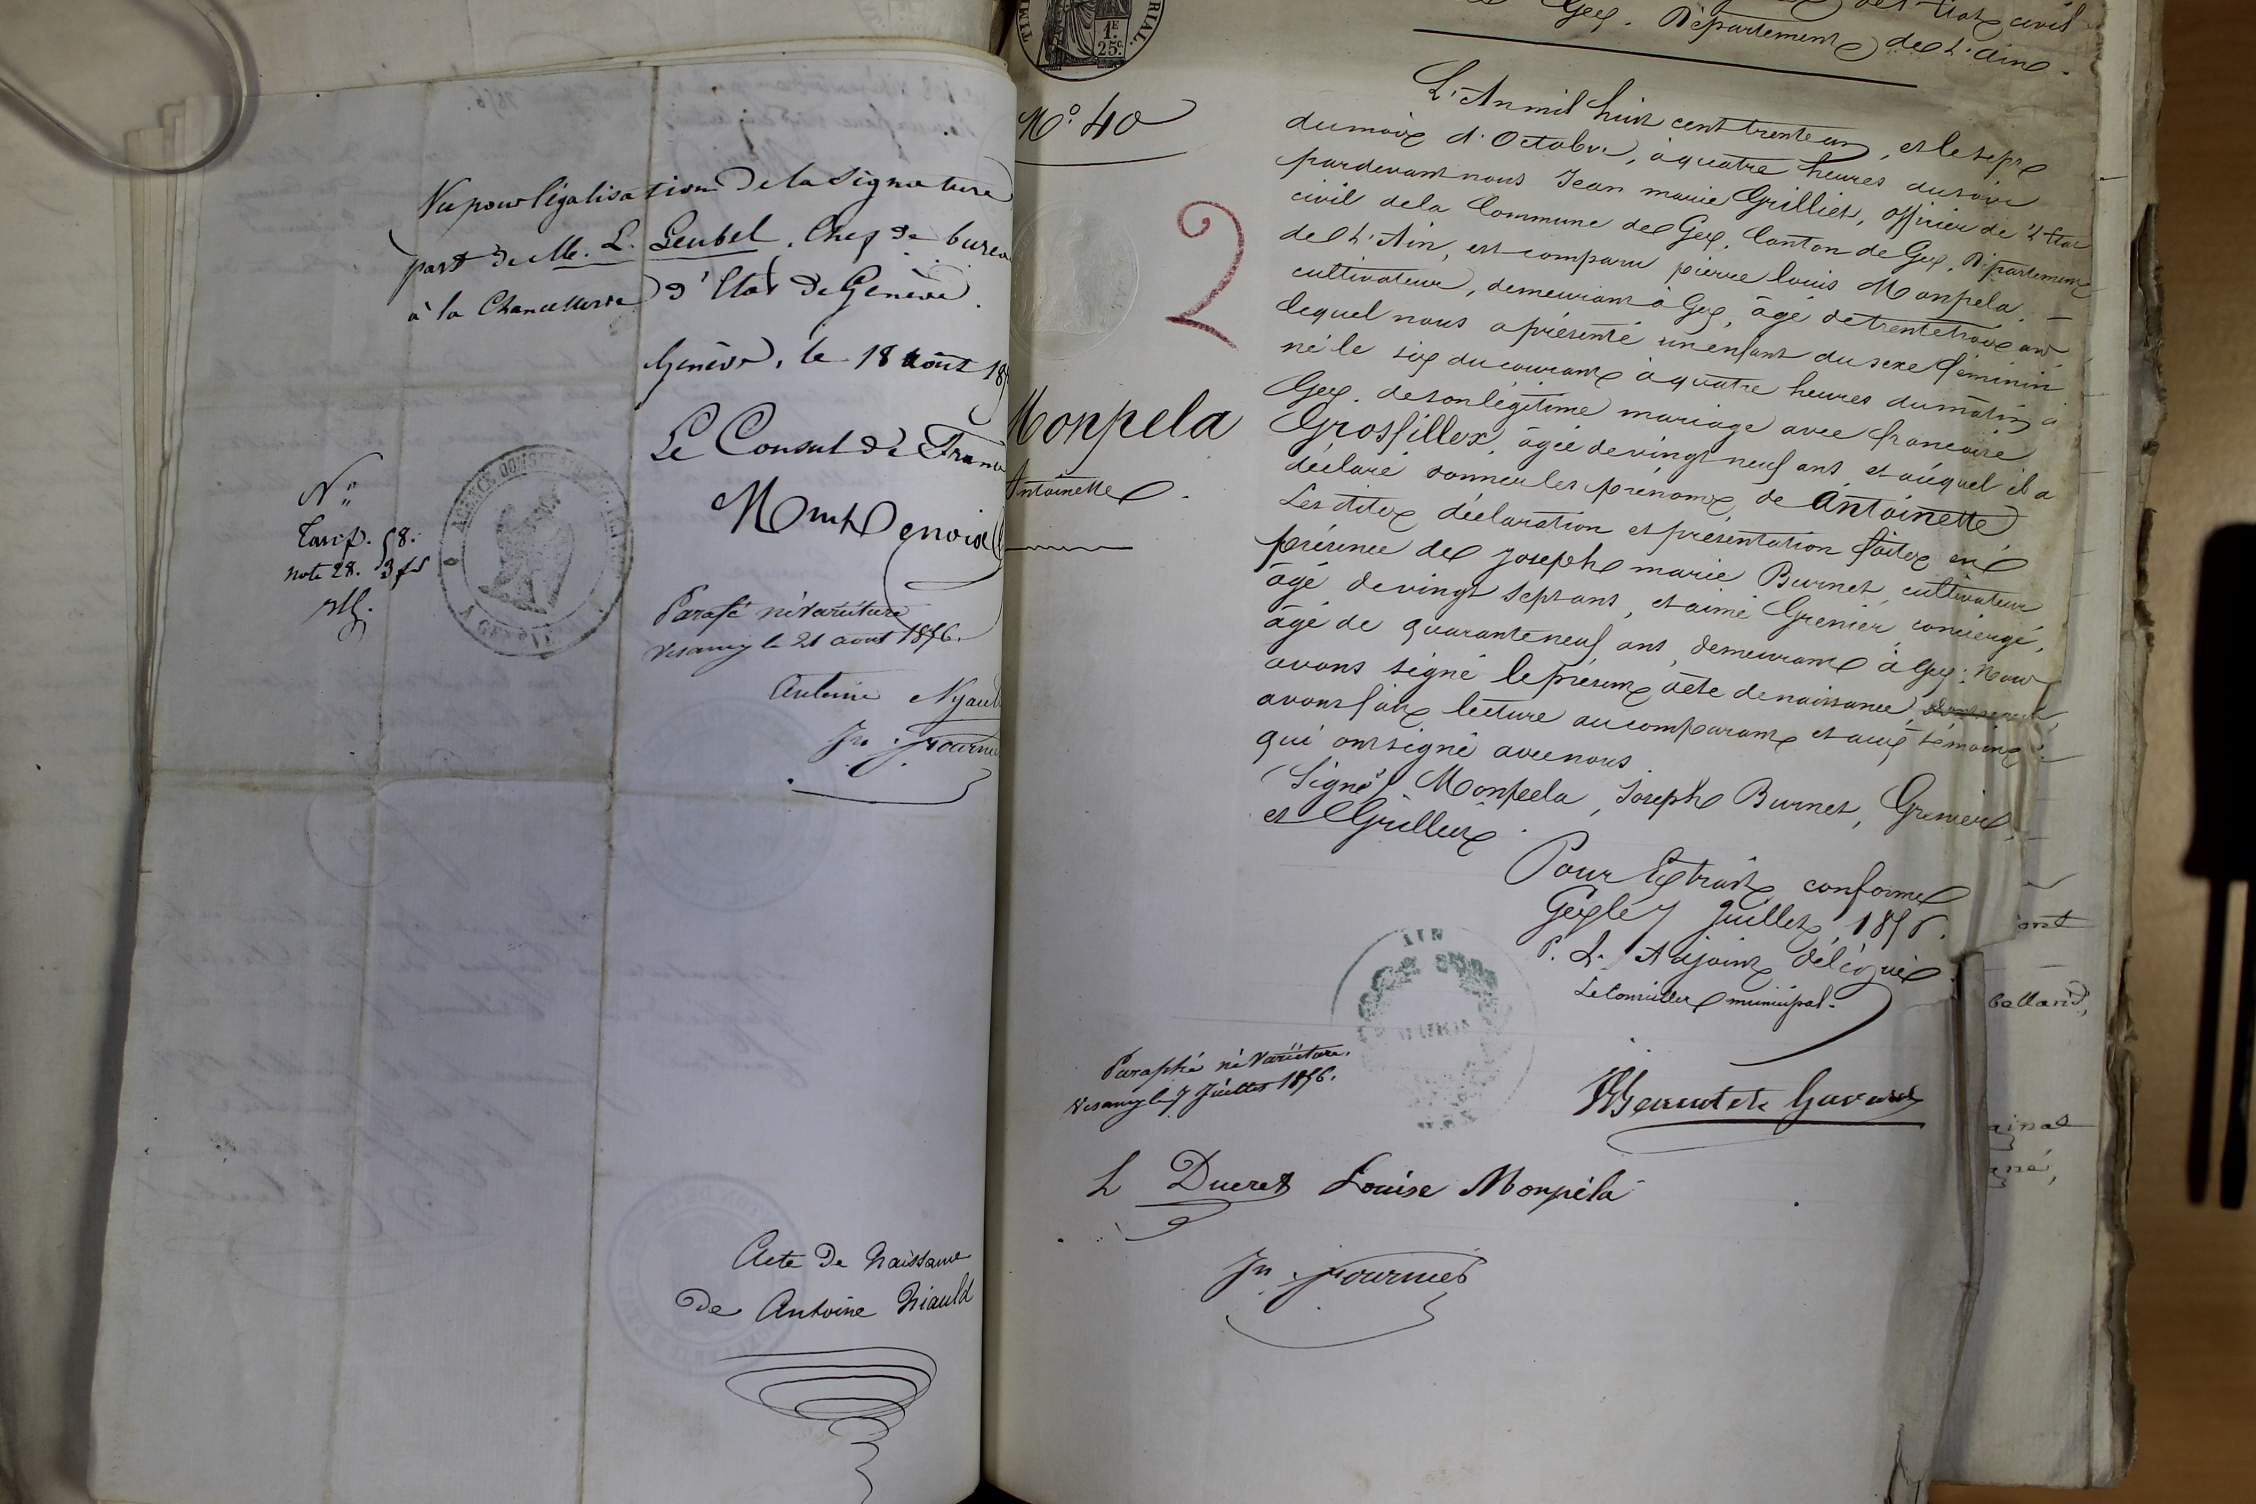 Vu pour légalisation de la Signature
part de M. L. Geubel, Chef de bureau
à la Chancellerie d'Etat de Genève.
Genève, le 18 Août 18
Le Consul de France
N°
Tarif. 58.
note 28. 3 f
AGENCE CONS
A GENEVE
Parafé ne varietur
Vesancy le 21 aout 1856.
Antoine Nyauld
Jn. Fournier
Acte de Naissance
De Antoine Niauld
1F
25c.
Gex. Département de L'Ain.
N°. 40
2
Monpela
Antoinette.
L'An mil huit cent trente un, et le sept
du moix d'Octobre, à quatre heures du soir
pardevant nous Jean marie Grilliet, officier de l'Etat
civil de la Commune de Gex, Canton de Gex, Département
de L'Ain, est comparu pierre louis Monpela,
cultivateur, demeurant à Gex, âgé de trente trois ans
lequel nous a présenté un enfant du sexe féminin
né le six du courant à quatre heures du matin à
Gex, de son légitime mariage avec francoise
Grosfillex, âgée de vingt neuf ans, et auquel il a
déclaré donner les prénoms de Antoinette
Les dites déclaration et présentation faites en
présence de Joseph marie Burnet, cultivateur
âgé de vingt sept ans, et aimé Grenier, concierge,
âgé de quarante neuf ans, demeurant à Gex; Nous
avons signé le présent acte de naissance,
avons fait lecture au comparant et aux témoins
qui ont signé avec nous
(Signé) Monpela, Joseph Burnet, Grenier,
et Grilliet.
Pour Extrait conforme
Gex le 7 Juillet 1856.
P. L. Adjoint délégué
Le Conseiller municipal.
AIN
Paraphé ne varietur.
Vesancy le 7 Juillet 1856.
L Ducret Louise Monpéla
Jn. Fournier